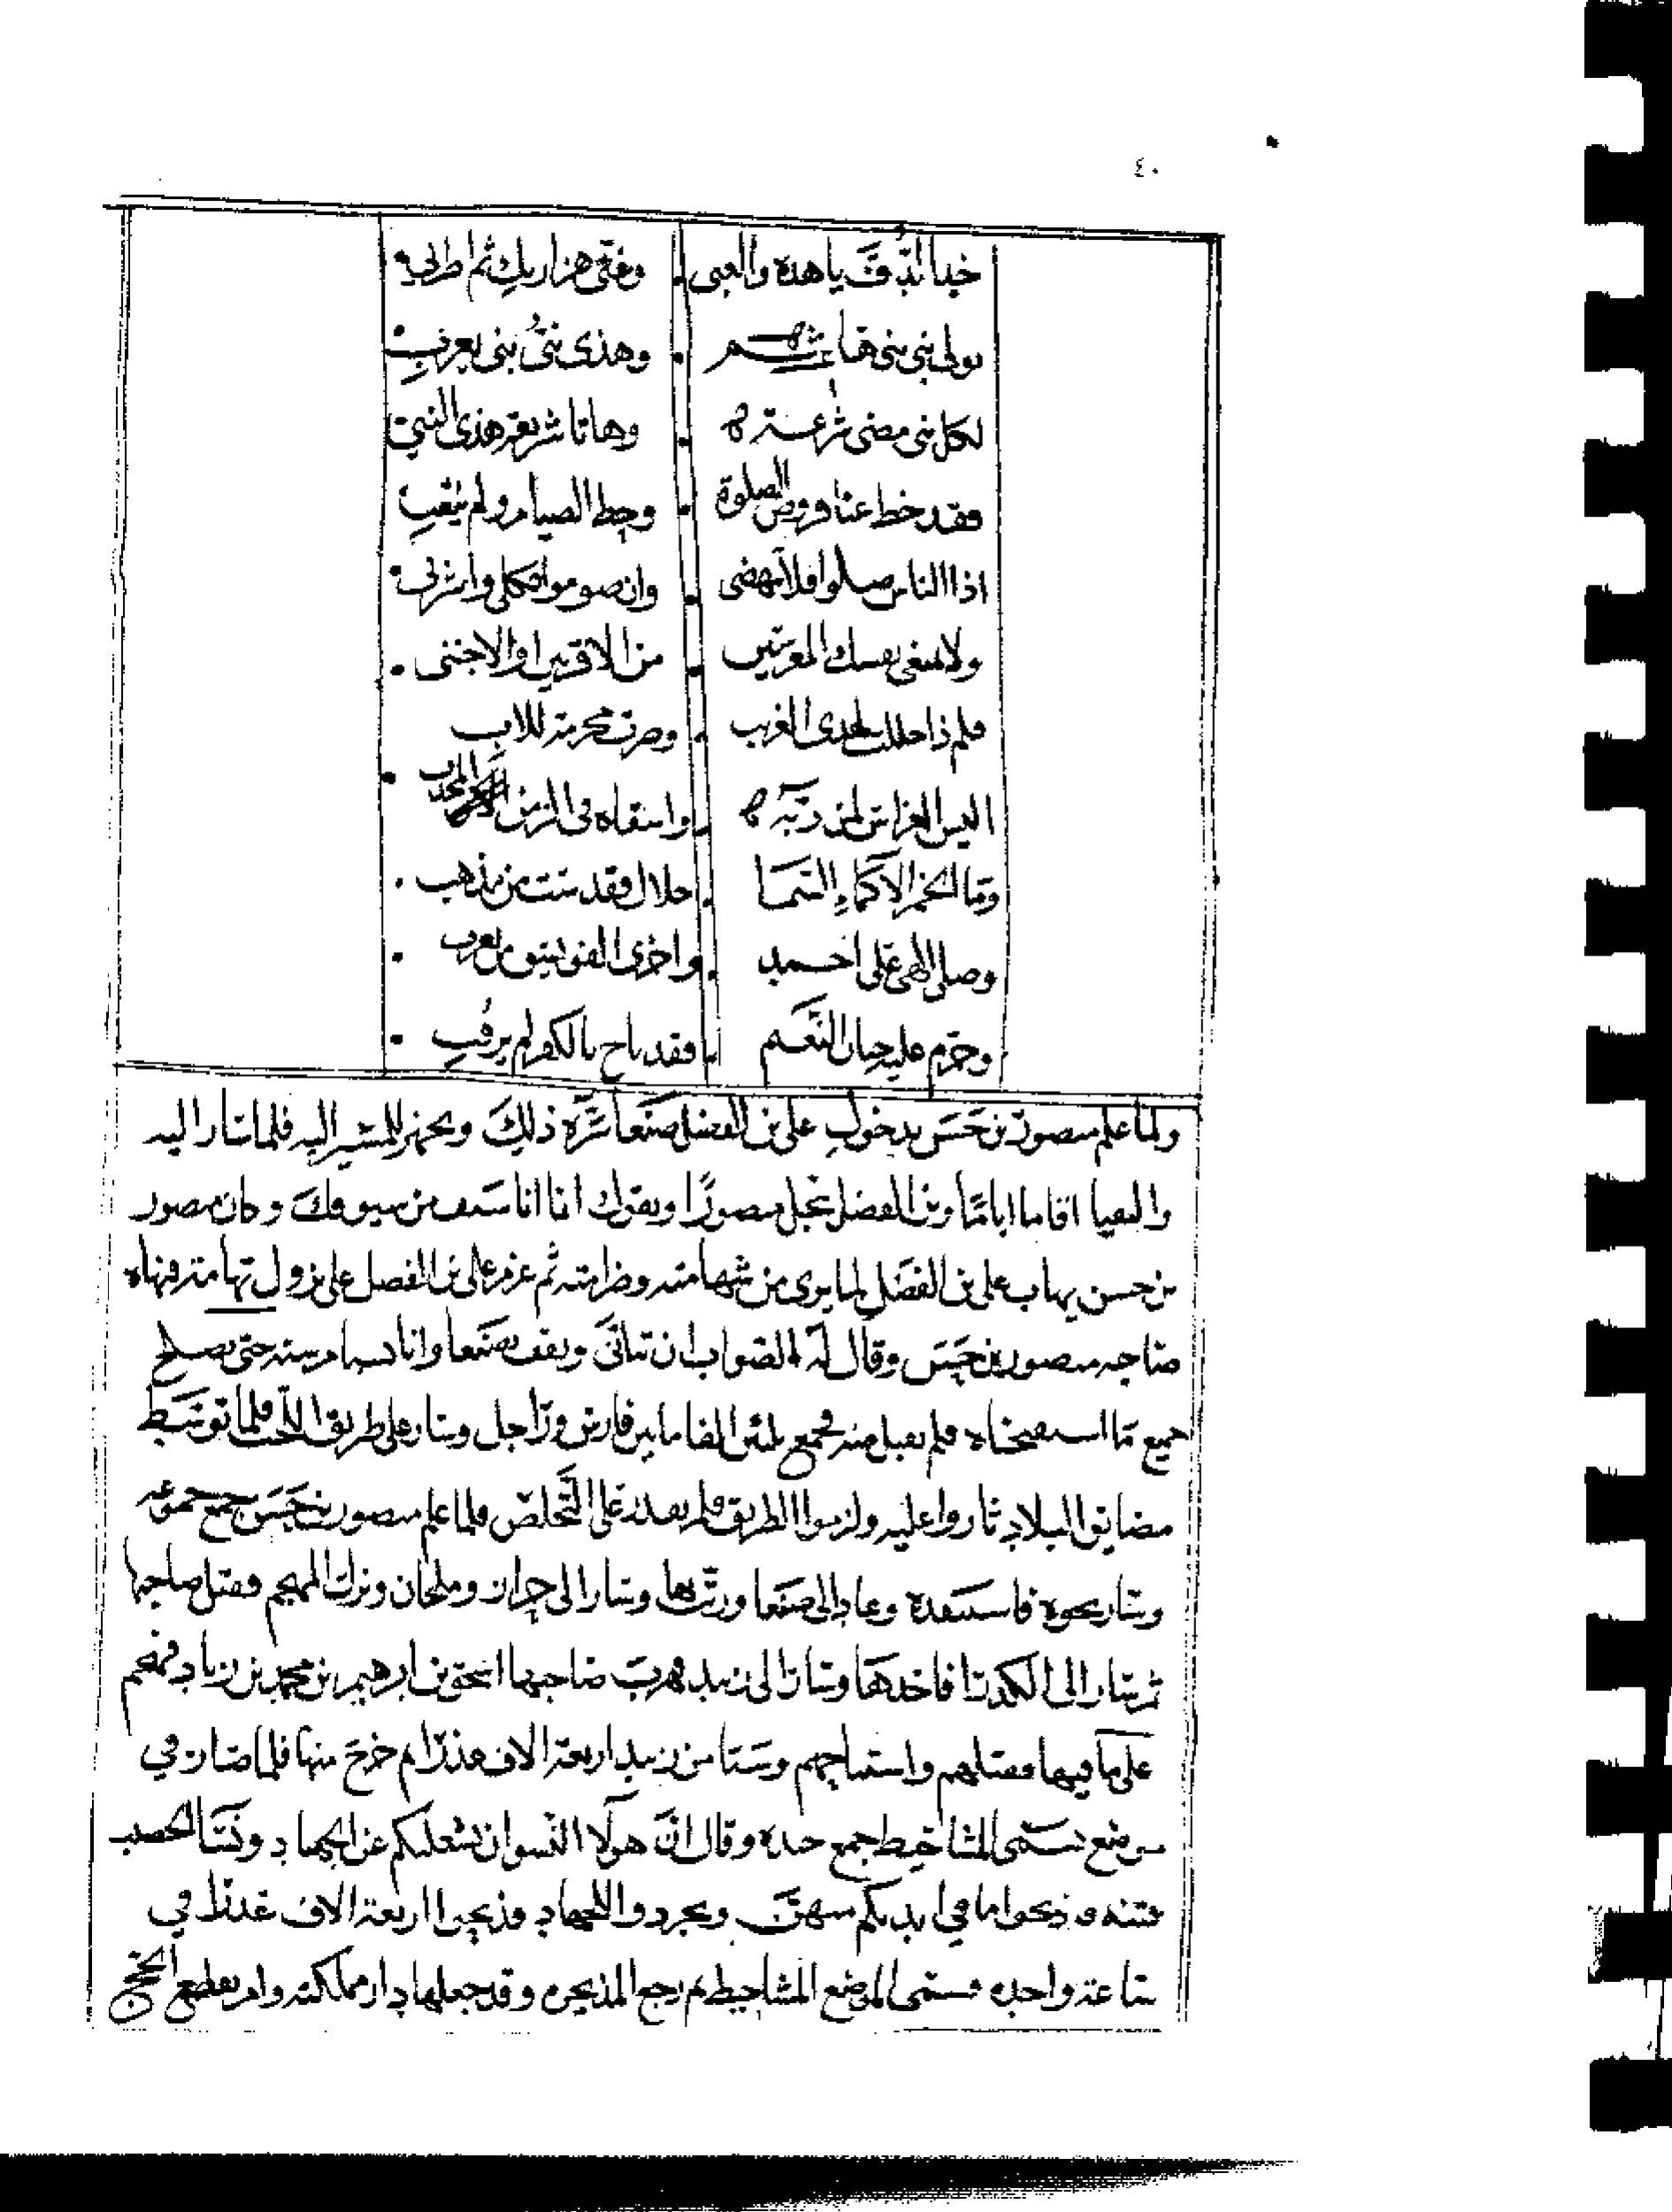 ٤٠
خذي الدف يا هذه والعبي . وغني هزاريك ثم اطربي
تولى نبي بني هاشم . وهذى نبي بني يعرب
لكل نبي مضى شرعته . وهاتا شريعة هذى النبي
فقد حط عنا فروض الصلوة . وحط الصيام ولم يتعب
اذا الناس صلوا فلا تنهضى . وان صوموا فكلى واشربي
ولا تمنعى نفسك المعرسين . من الاقربين او الاجنبى
فلم ذا حللت لهذى الغريب . وصرت محرمة للاب
اليس الغراس لمن ربه . واسقاه فى الزمن المجدب
وما الخمر الا كماء السما . حلال فقدست من مذهب
وصلى الهى على احمد . واخزى الفويسق من يعرب
وحرم عليه جنان النعيم . فقد باح بالكفر لم يرقب
ولما علم منصور بن حسن بدخول على بن الفضل صنعا سره ذلك وتجهز للمسير اليه فلما سار اليه
والتقيا اقاما اياما وبن الفضل يبجل منصورا ويقول انما انا سيف من سيوفك وكان منصور
بن حسن يهاب على بن الفضل لما يرى من شهامته وصرامته ثم عزم على بن الفضل على نزول تهامة فنهاه
صاحبه منصور بن حسن وقال له الصواب ان تتانى وتقف بصنعا وانا بشبام سنة حتى يصلح
جميع ما استفتحناه فلم يقبل منه فجمع ثلثين الفا ما بين فارس وراجل وسار على طريق فلما توسط
مضايق البلاد ثاروا عليه ولزموا الطريق فلم يقدر على التخلص فلما علم منصور بن حسن جمع جموعه
وسار نحوه فاستنقذه وعاد الى صنعا ورتبها وسار الى حراز وملحان ونزل المهجم فقتل صاحبها
ثم سار الى الكدرا فاخذها وسار الى زبيد فهرب صاحبها اسحق بن ابرهيم بن محمد بن زياد فهجم
على ما فيها فقتلهم واستباحهم وسبا من زبيد اربعة الاف عذرا ثم خرج منها فلما صار في
موضع يسمى المشاخيط جمع جنده وقال ان هولا النسوان تشغلكم عن الجهاد ونسا الحصيب
فتنه فاذبحوا ما في ايديكم منهن وتجردوا للجهاد فذبحوا اربعة الاف عذرا في
ساعة واحده فسمى الموضع المشاحيط ثم رجع المذيخره وقد جعلها دار مملكته وامر بقطع الحج